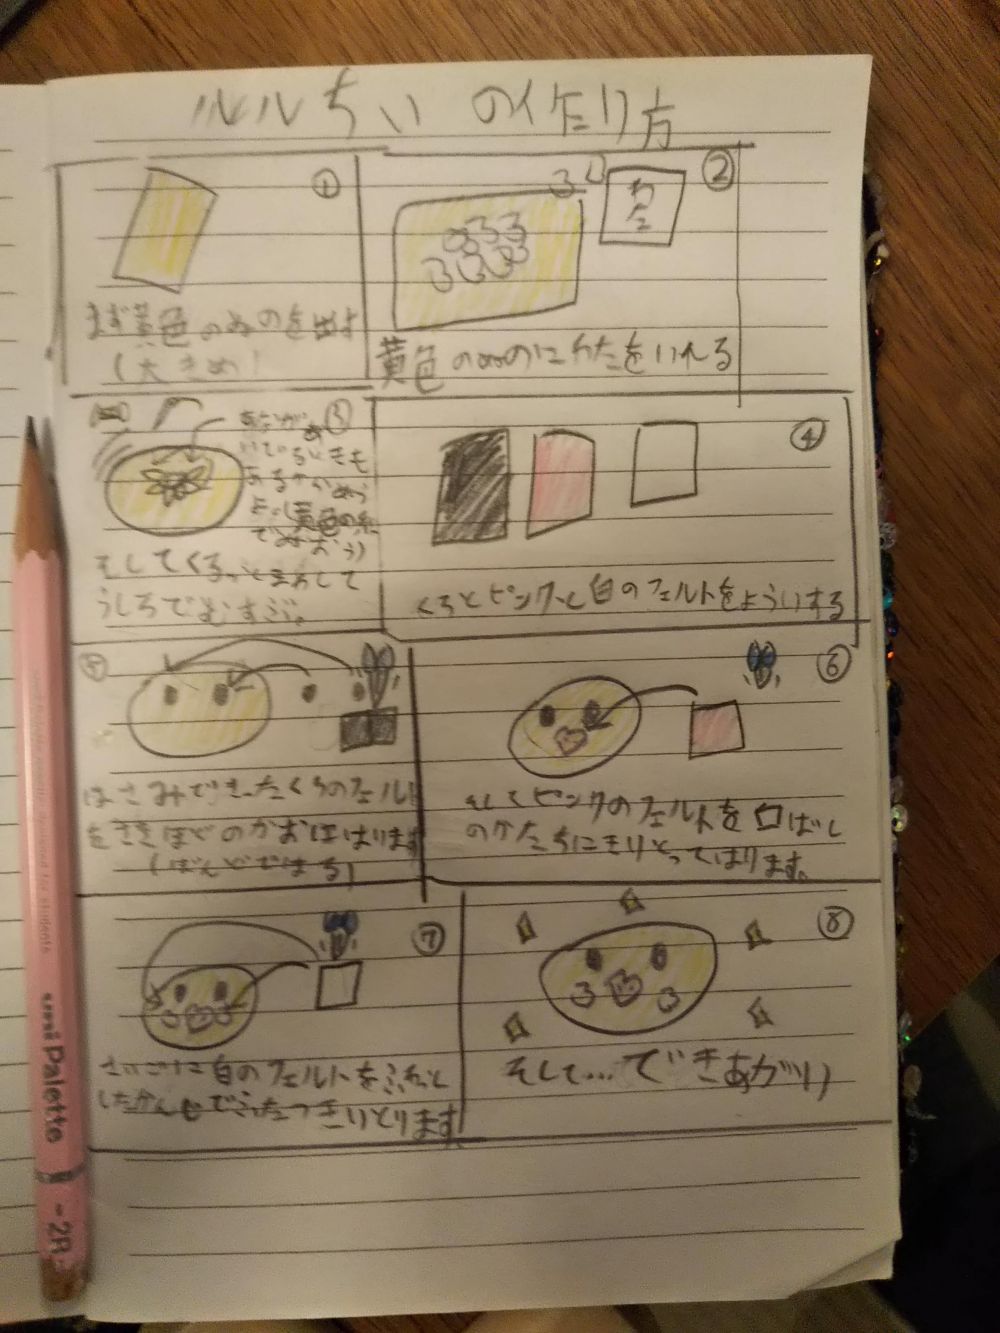 ルルちい の作り方
①
まず黄色のぬのを出す
(大きめ)
②
わた
黄色のぬのにわたをいれる
③
あながあ
いているいとも
あるから
よい(黄色の糸
でぬおう)
そしてくるっとまわして
うしろでむすぶ。
④
くろとピンクと白のフェルトをよういする
⑤
はさみできったくろのフェルト
をさきほどのかおにはります
(ぼんどではる)
⑥
そしてピンクのフェルトを口ばし
のかたちにきりとってはります。
⑦
さいごに白のフェルトをふわっと
したかんじでふたつきりとります
⑧
そして…できあがり
uni Palette
-2B